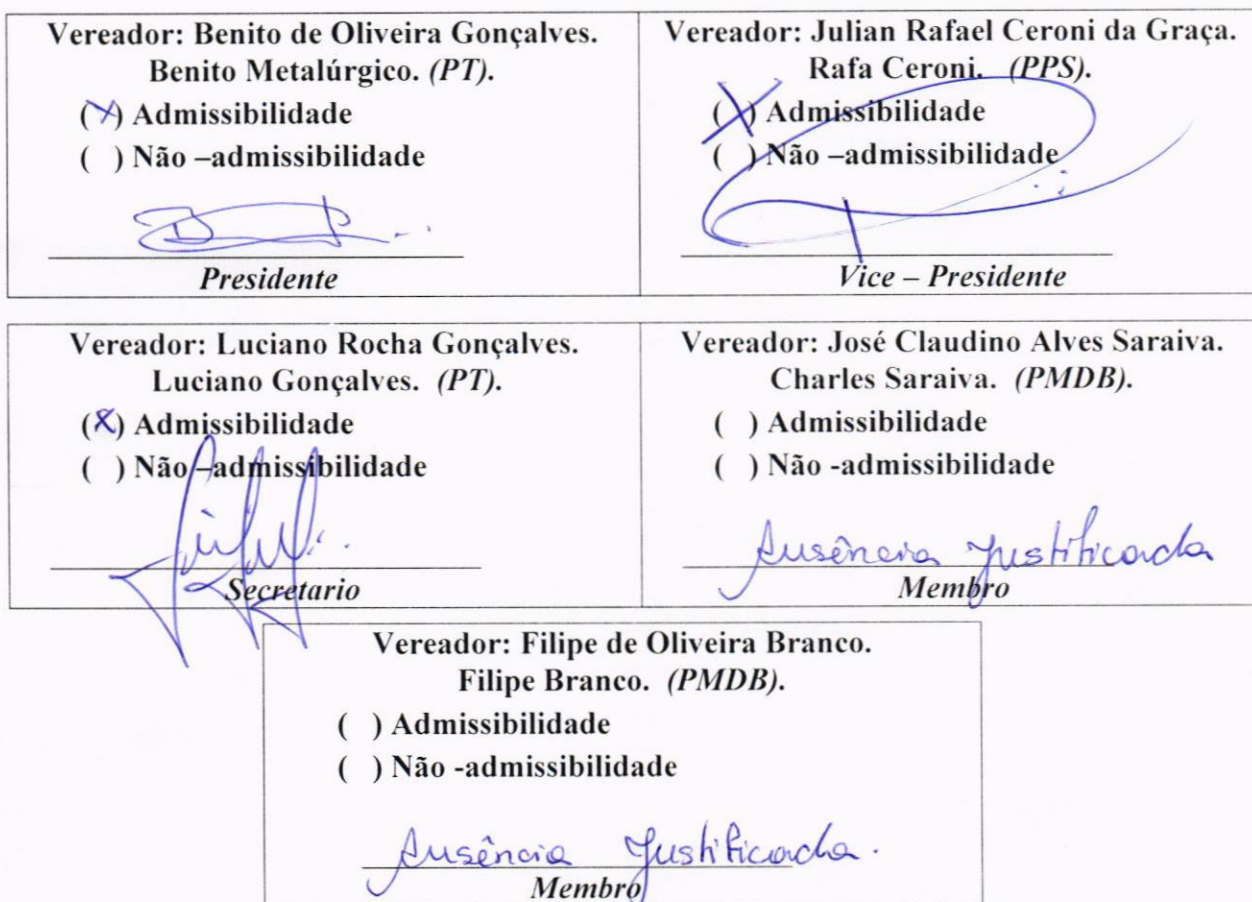 Vereador: Benito de Oliveira Gonçalves.
Benito Metalúrgico. (PT).
(X) Admissibilidade
( ) Não –admissibilidade
Presidente
Vereador: Julian Rafael Ceroni da Graça.
Rafa Ceroni. (PPS).
(X) Admissibilidade
( ) Não –admissibilidade
Vice – Presidente
Vereador: Luciano Rocha Gonçalves.
Luciano Gonçalves. (PT).
(X) Admissibilidade
( ) Não –admissibilidade
Secretario
Vereador: José Claudino Alves Saraiva.
Charles Saraiva. (PMDB).
( ) Admissibilidade
( ) Não -admissibilidade
Ausência Justificada
Membro
Vereador: Filipe de Oliveira Branco.
Filipe Branco. (PMDB).
( ) Admissibilidade
( ) Não -admissibilidade
Ausência Justificada.
Membro